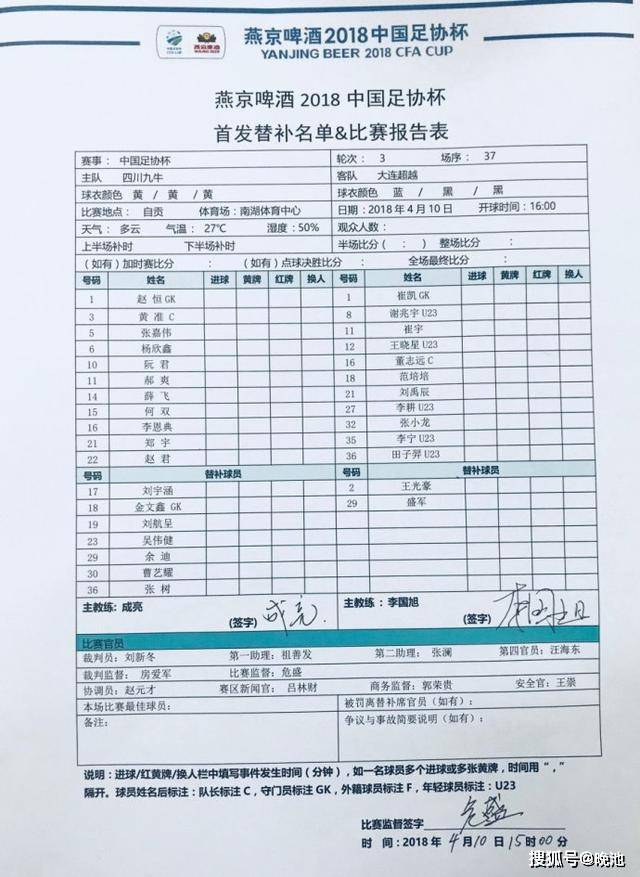 中国足协杯 CFA CUP 燕京啤酒 YANJING BEER 燕京啤酒2018中国足协杯
YANJING BEER 2018 CFA CUP
燕京啤酒 2018 中国足协杯
首发替补名单&比赛报告表
赛事： 中国足协杯 轮次： 3 场序： 37
主队 四川九牛 客队 大连超越
球衣颜色 黄 / 黄 / 黄 球衣颜色 蓝 / 黑 / 黑
比赛地点： 自贡 体育场：南湖体育中心 日期：2018 年 4 月 10 日 开球时间：16:00
天气： 多云 气温： 27℃ 湿度：50% 观众人数：
上半场补时 下半场补时 半场比分（ ： ） 整场比分：
（如有）加时赛比分 ： （如有）点球决胜比分 ： 全场最终比分： ：
号码 姓名 进球 黄牌 红牌 换人 号码 姓名 进球 黄牌 红牌 换人
1 赵 恒 GK 1 崔凯 GK
3 黄 准 C 8 谢兆宇 U23
5 张嘉伟 11 崔宇
6 杨欣鑫 12 王晓星 U23
10 阮 君 16 董志远 C
11 郝 爽 18 范培培
14 薛 飞 21 刘禹辰
15 何 双 27 李耕 U23
16 李恩典 32 张小龙
21 郑 宇 35 李宁 U23
22 赵 君 36 田子羿 U23
号码 替补球员 号码 替补球员
17 刘宇涵 2 王光豪
18 金文鑫 GK 29 盛军
19 刘航呈
23 吴伟健
29 余 迪
30 曹艺耀
36 张 树
主教练: 成亮 (签字) 成亮 主教练 ： 李国旭 (签字) 李国旭
比赛官员
裁判员：刘新冬 第一助理：祖善发 第二助理： 张澜 第四官员：汪海东
裁判监督： 房爱军 比赛监督：危盛
协调员：赵元才 赛区新闻官： 吕林财 商务监督：郭荣贵 安全官：王崇
本场比赛最佳球员： 被罚离替补席官员（如有）：
备注： 争议与事故简要说明（如有）：
说明：进球/红黄牌/换人栏中填写事件发生时间（分钟），如一名球员多个进球或多张黄牌，时间用“，”
隔开。球员姓名后标注：队长标注 C，守门员标注 GK，外籍球员标注 F，年轻球员标注：U23
比赛监督签字 危盛
时 间：2018年 4 月 10 日 15时00分
搜狐号@晚池